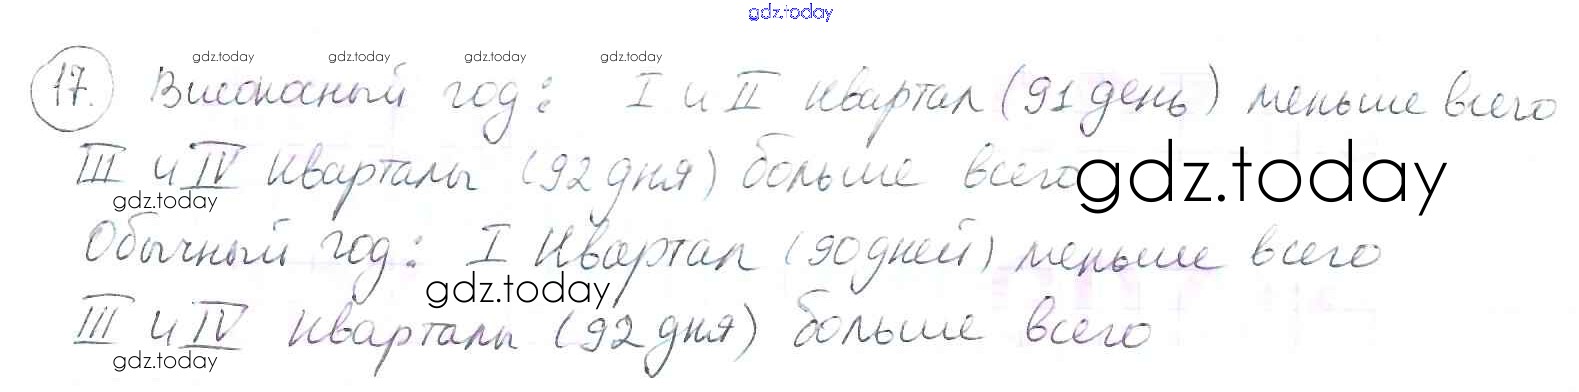 gdz.today
gdz.today gdz.today gdz.today gdz.today
17. Високосный год: I и II квартал (91 день) меньше всего
III и IV кварталы (92 дня) больше всего gdz.today
gdz.today
Обычный год: I квартал (90 дней) меньше всего
gdz.today
III и IV кварталы (92 дня) больше всего
gdz.today